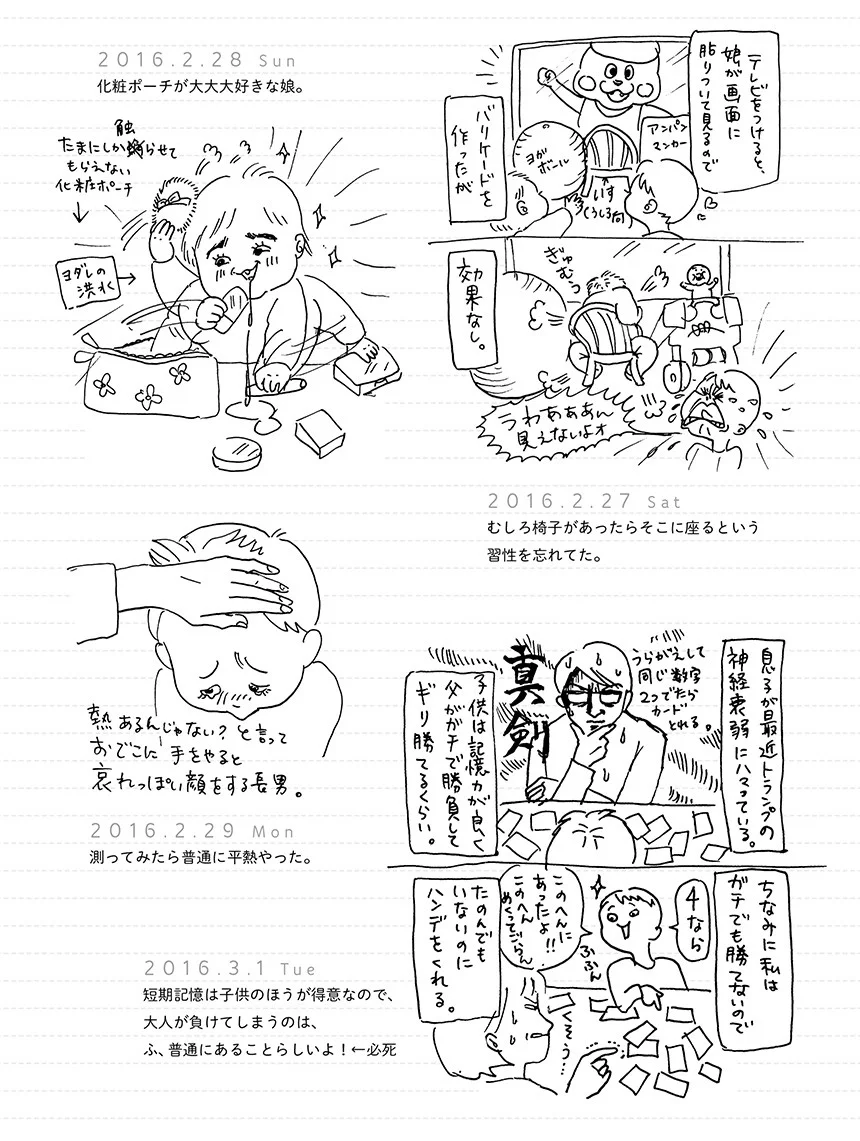 テレビをつけると、
娘が画面に
貼りついて見るので
バリケードを
作ったが
アンパン
マンカー
ヨガ
ボール
いす
(うしろ向)
効果なし。
ぎゅむっ
うわあぁぁん
見えないよォ
2016.2.27 Sat
むしろ椅子があったらそこに座るという
習性を忘れてた。
2016.2.28 Sun
化粧ポーチが大大大好きな娘。
触
たまにしか らせて
もらえない
化粧ポーチ
ヨダレの
洪水
熱あるんじゃない?と言って
おでこに手をやると
哀れっぽい顔をする長男。
2016.2.29 Mon
測ってみたら普通に平熱やった。
息子が最近トランプの
神経衰弱にハマっている。
うらがえして
同じ数字
2つでたら
カード
とれる。
真剣
子供は記憶力が良く
父がガチで勝負して
ギリ勝てるくらい。
ちなみに私は
ガチでも勝てないので
4なら
このへんに
あったよ!!
このへん
めくってごらん
ふふん
たのんでも
いないのに
ハンデをくれる。
くそう…
2016.3.1 Tue
短期記憶は子供のほうが得意なので、
大人が負けてしまうのは、
ふ、普通にあることらしいよ!←必死